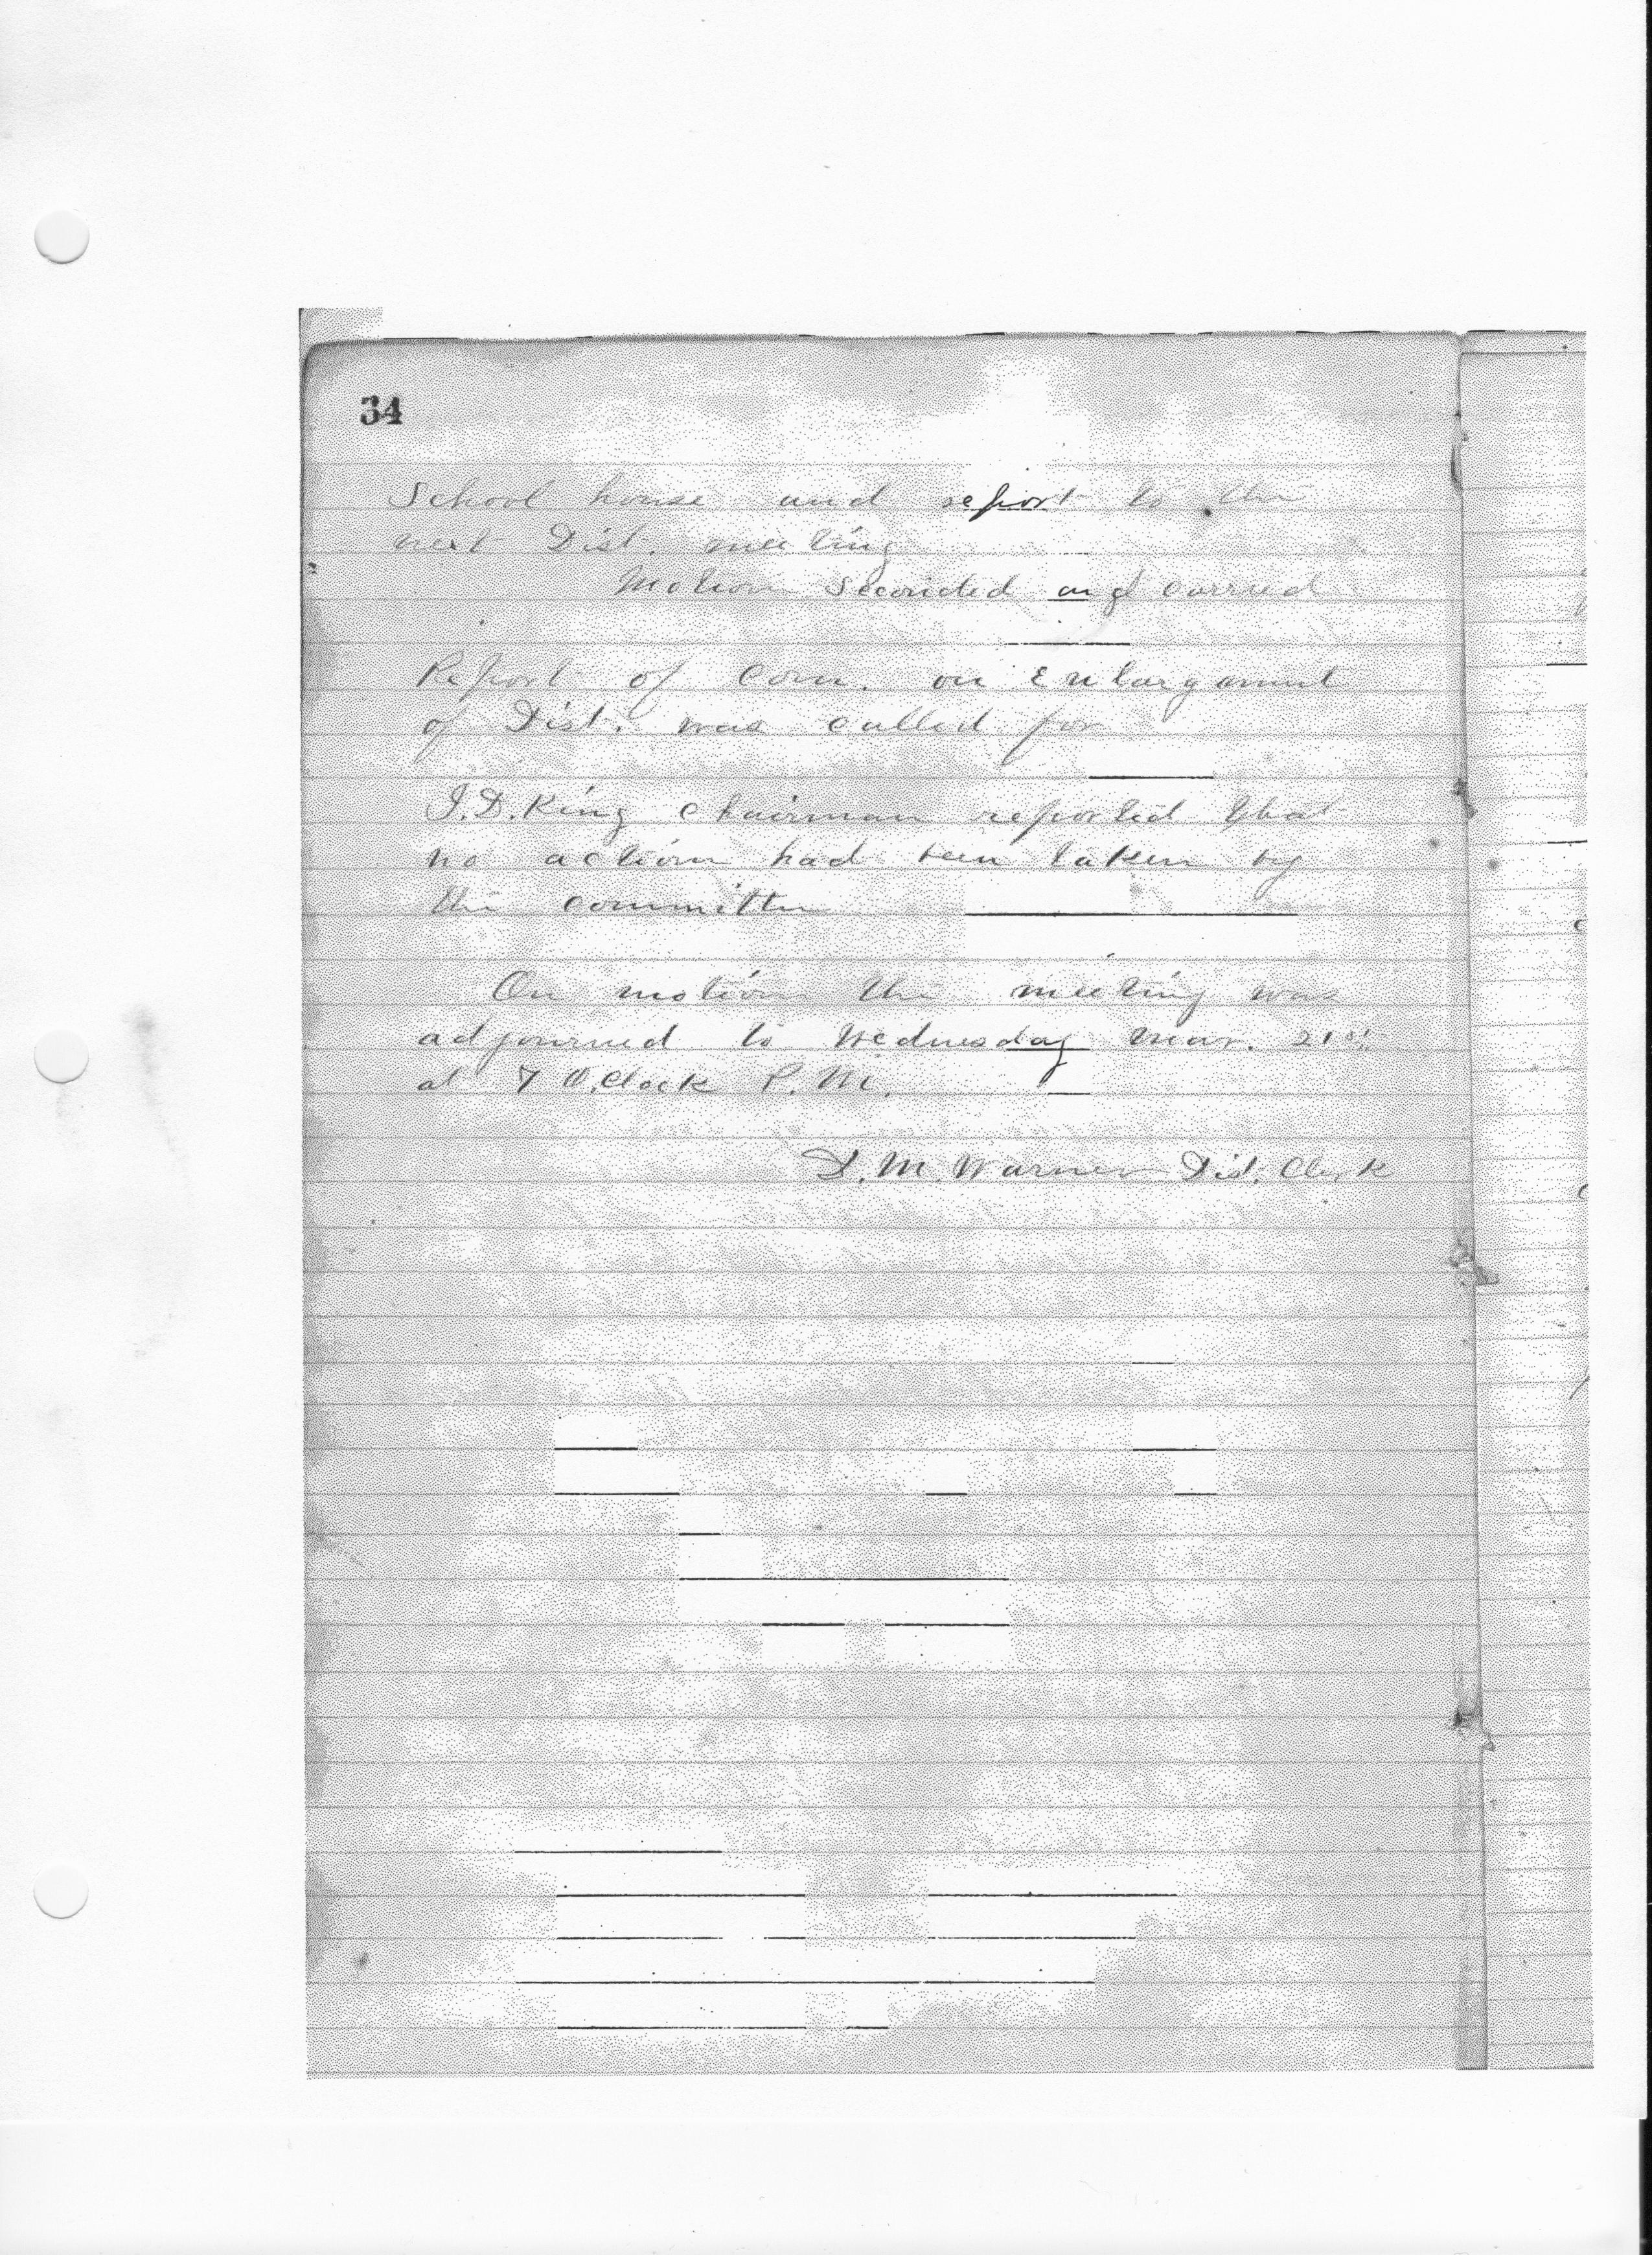 34
School house and report to the
next Dist. meeting
Motion Seconded and carried
Report of Com. on Enlargement
of Dist. was called for
I.D. King chairman reported that
no action had been taken by
the committee
On motion the meeting was
adjourned to Wednesday Mar. 21st
at 7 O,Clock P.M.
D.M. Warner Dist. Clerk